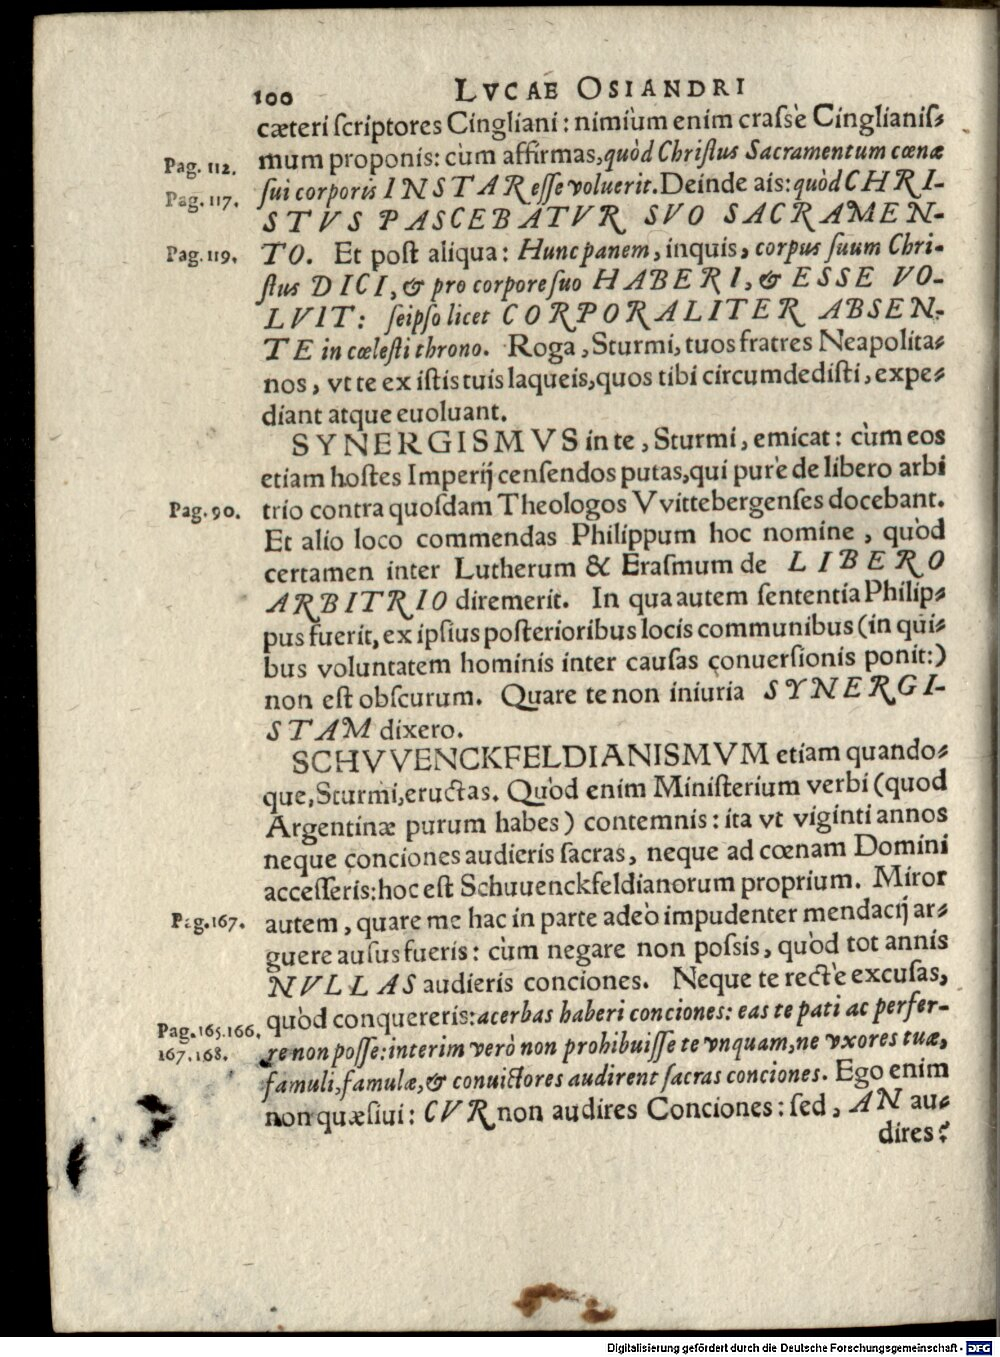 100 LVCAE OSIANDRI
cæteri scriptores Cingliani: nimiùm enim crassè Cinglianis-
Pag. 112. mum proponis: cùm affirmas, quòd Christus Sacramentum cœnæ
Pag. 117. sui corporis INSTAR esse voluerit. Deinde ais: quòd CHRI-
STVS PASCEBATVR SVO SACRAMEN-
Pag. 119. TO. Et post aliqua: Hunc panem, inquis, corpus suum Chri-
stus DICI, & pro corpore suo HABERI, & ESSE VO-
LVIT: seipso licet CORPORALITER ABSEN-
TE in cœlesti throno. Roga, Sturmi, tuos fratres Neapolita-
nos, vt te ex istis tuis laqueis, quos tibi circumdedisti, expe-
diant atque euoluant.
SYNERGISMVS in te, Sturmi, emicat: cùm eos
etiam hostes Imperij censendos putas, qui purè de libero arbi
Pag. 90. trio contra quosdam Theologos VVittebergenses docebant.
Et alio loco commendas Philippum hoc nomine, quòd
certamen inter Lutherum & Erasmum de LIBERO
ARBITRIO diremerit. In qua autem sententia Philip-
pus fuerit, ex ipsius posterioribus locis communibus (in qui-
bus voluntatem hominis inter causas conuersionis ponit:)
non est obscurum. Quare te non iniuria SYNERGI-
STAM dixero.
SCHVVENCKFELDIANISMVM etiam quando-
que, Sturmi, eructas. Quòd enim Ministerium verbi (quod
Argentinæ purum habes) contemnis: ita vt viginti annos
neque conciones audieris sacras, neque ad cœnam Domini
accesseris: hoc est Schuuenckfeldianorum proprium. Miror
Pag. 167. autem, quare me hac in parte adeò impudenter mendacij ar-
guere ausus fueris: cùm negare non possis, quòd tot annis
NVLLAS audieris conciones. Neque te rectè excusas,
Pag. 165. 166. quòd conquereris: acerbas haberi conciones: eas te pati ac perfer-
167. 168. re non posse: interim verò non prohibuisse te vnquam, ne vxores tuæ,
famuli, famulæ, & conuictores audirent sacras conciones. Ego enim
non quæsiui: CVR non audires Conciones: sed, AN au-
dires?
Digitalisierung gefördert durch die Deutsche Forschungsgemeinschaft - DFG